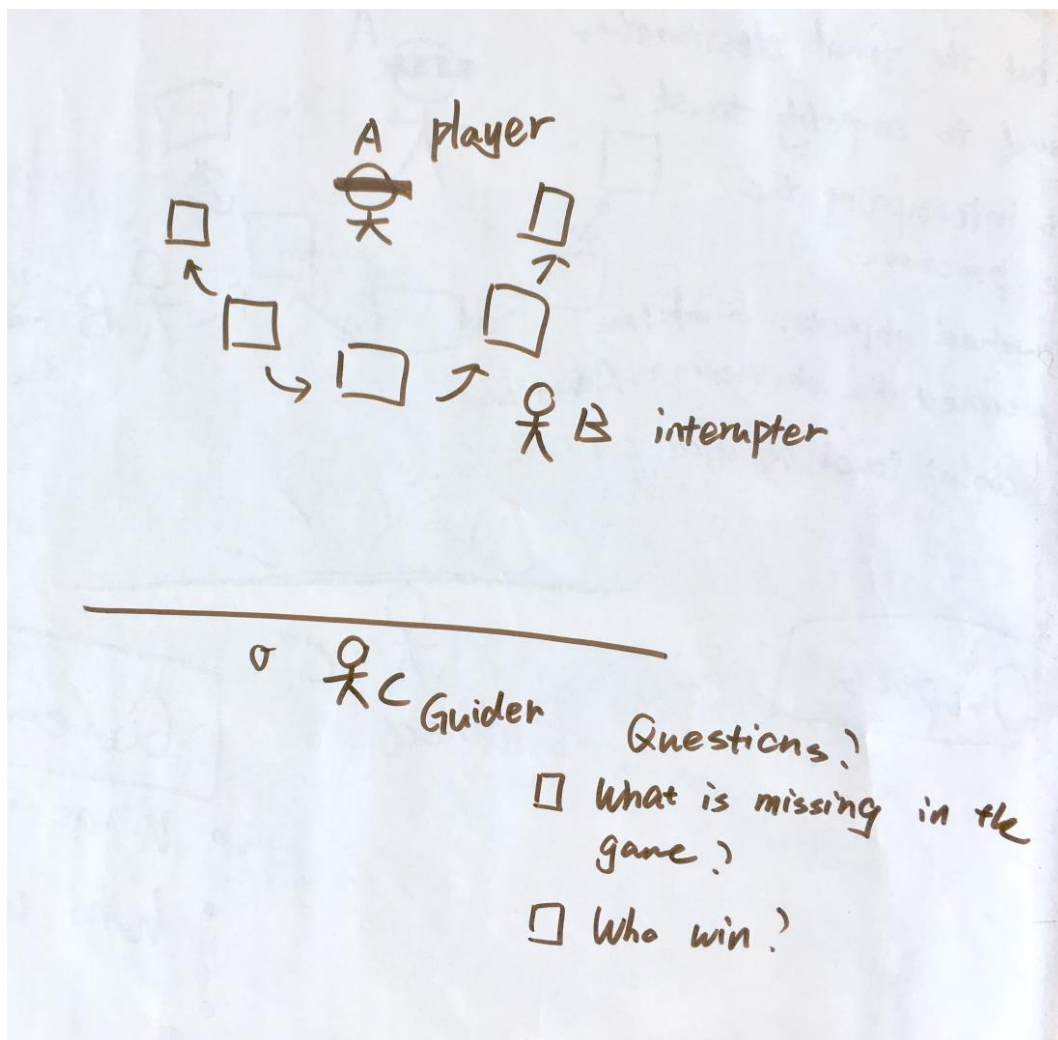 A player
B interupter
C Guider
Questions?
What is missing in the
game?
Who win?